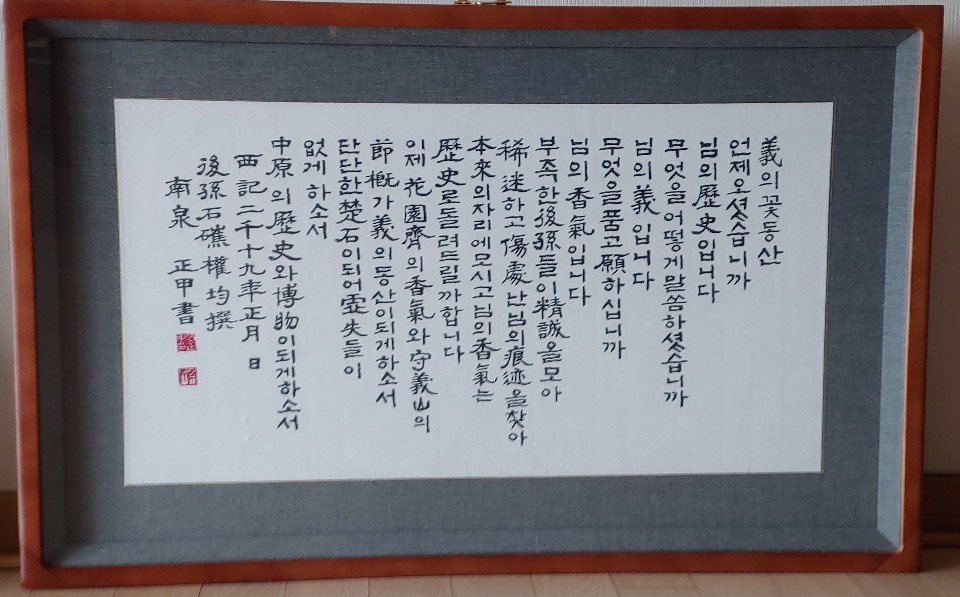 義의꽃동산
언제오셨습니까
님의歷史입니다
무엇을어떻게말씀하셨습니까
님의義입니다
무엇을품고願하십니까
님의香氣입니다
부족한後孫들이精誠을모아
稀迷하고傷處난님의痕迹을찾아
本來의자리에모시고님의香氣는
歷史로돌려드릴까합니다
이제花園齊의香氣와守義山의
節槪가義의동산이되게하소서
단단한楚石이되어虛失들이
없게하소서
中原의歷史와博物이되게하소서
西記二千十九年正月 日
後孫石 權均撰
南泉 正甲書